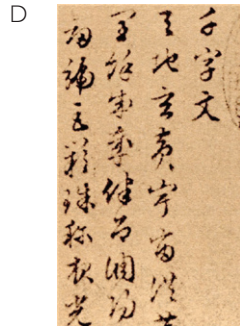 D
千字文
天地玄黄宇宙洪荒
閏餘成歲律召調陽
劍號巨闕珠稱夜光